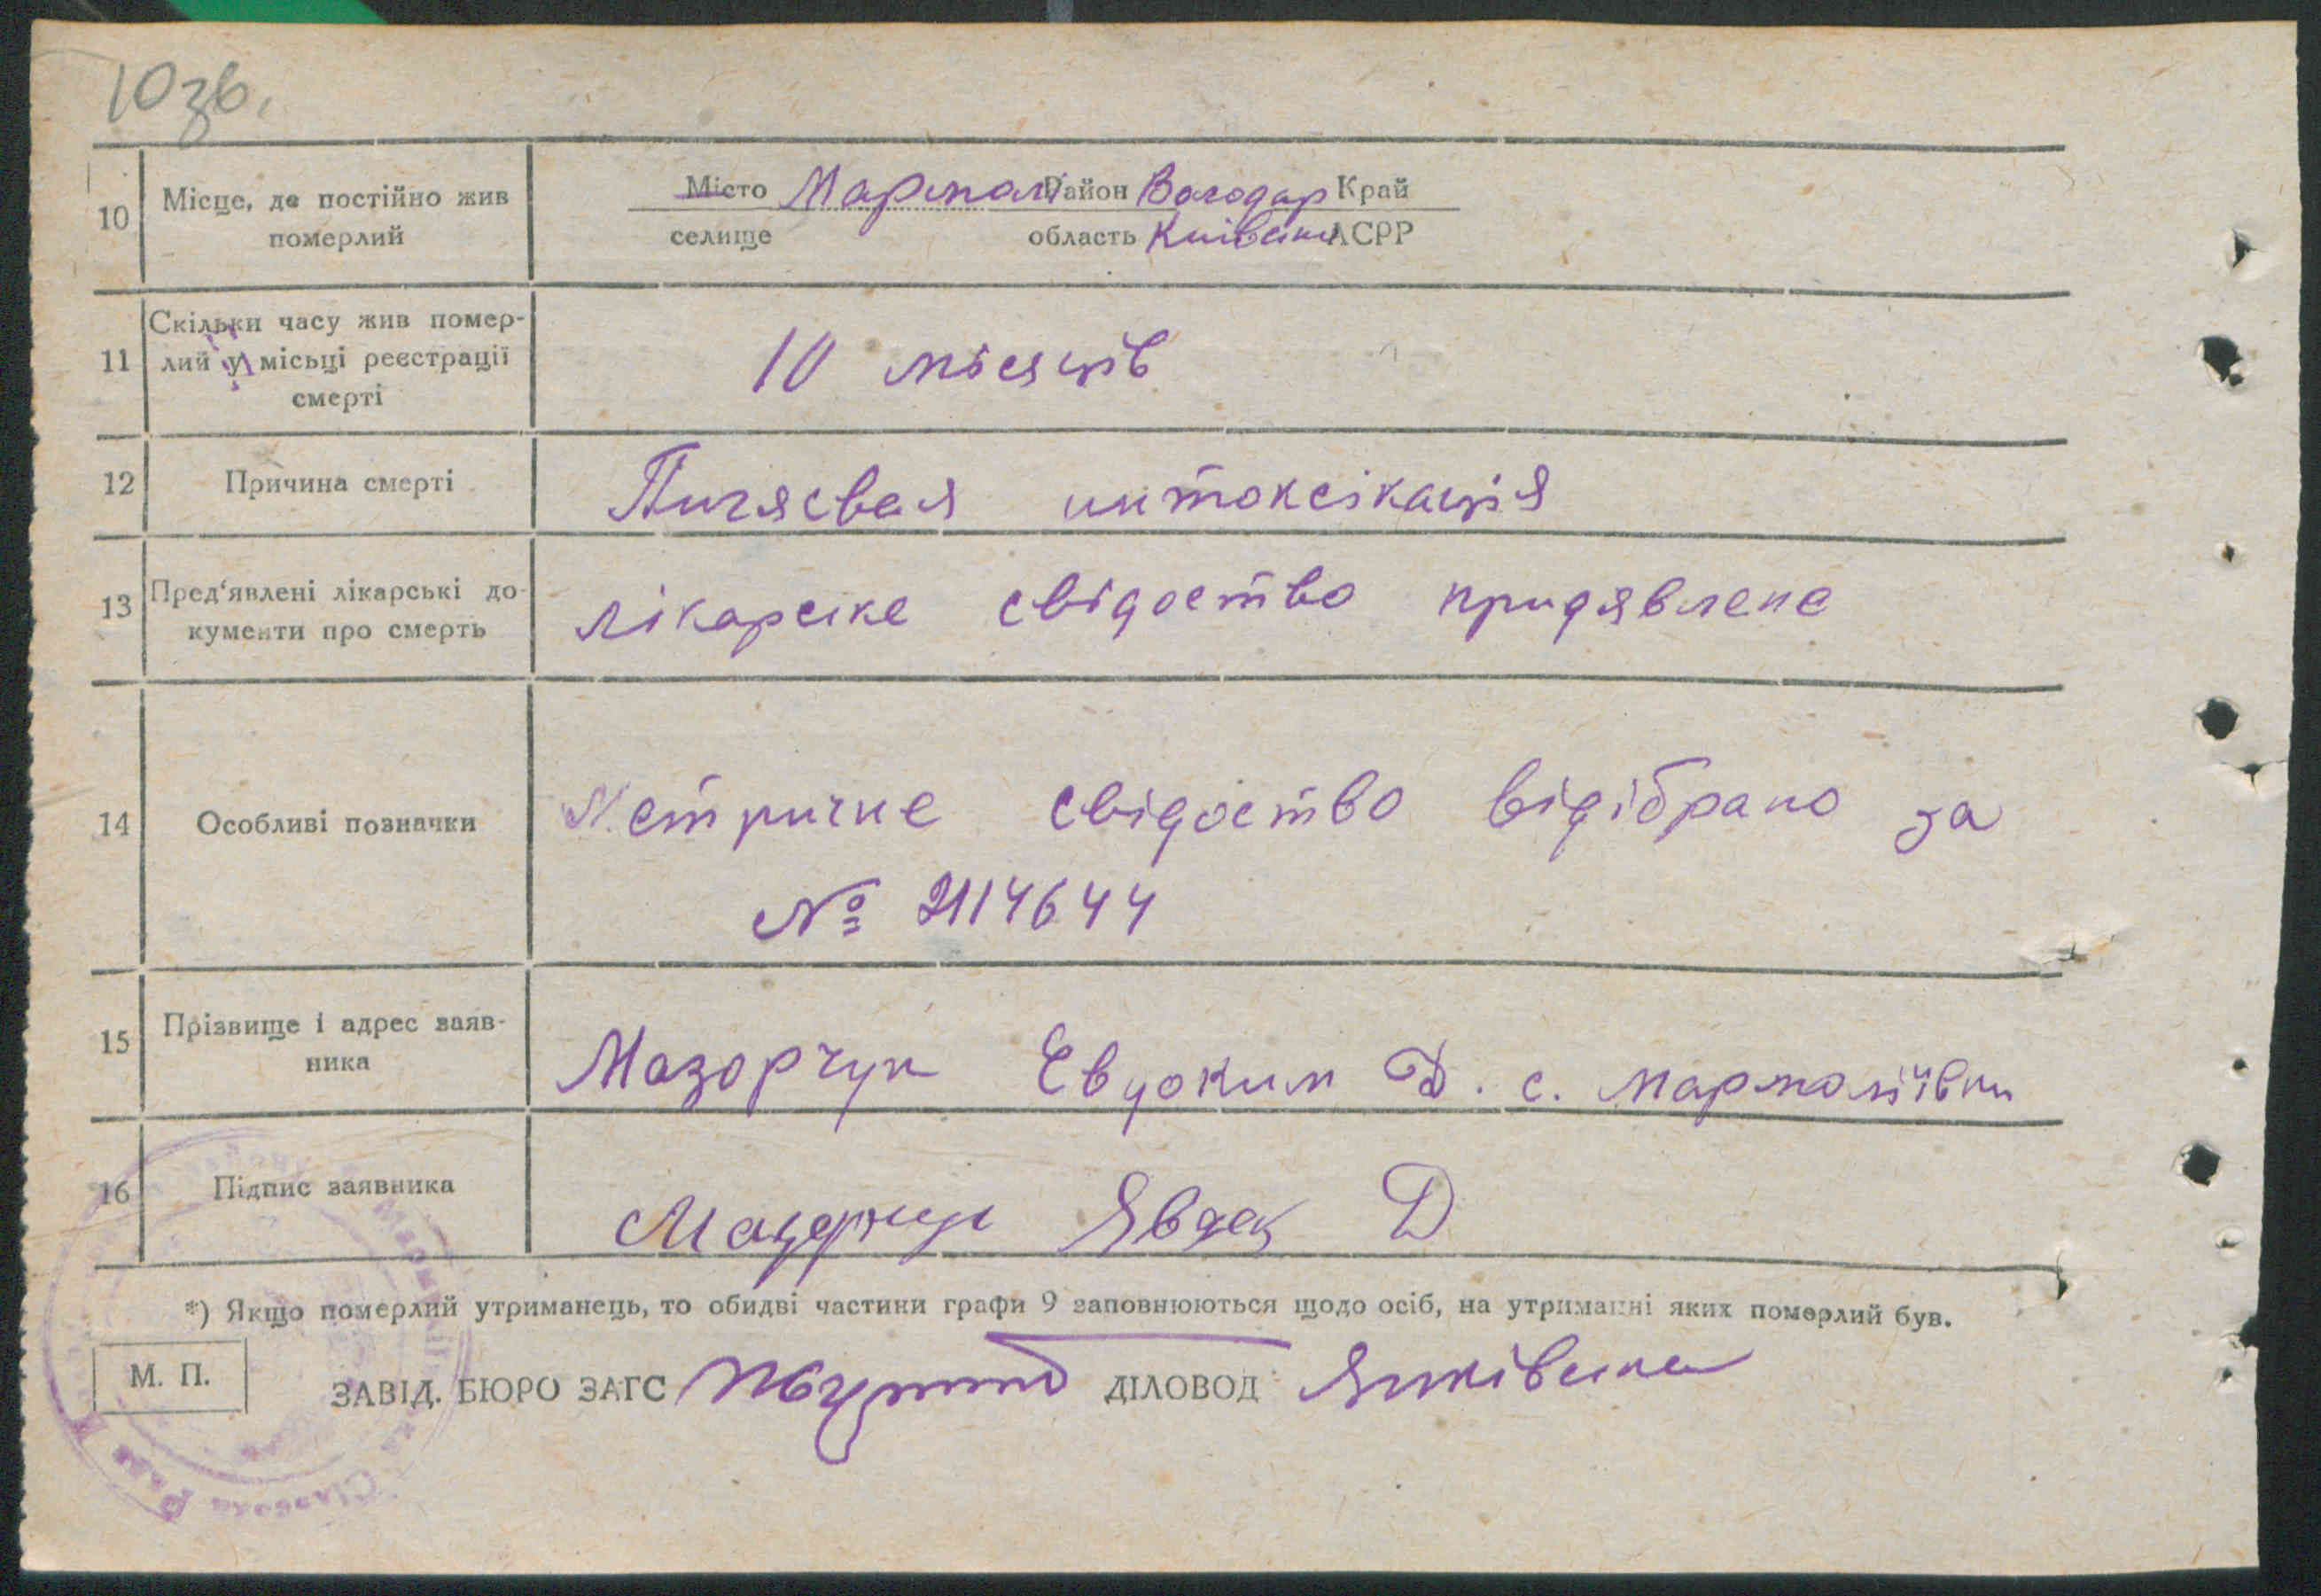 10зв.
10 Місце, де постійно жив померлий
Місто Мармолі Район Володар Край
селище область Київськи АСРР
11 Скільки часу жив помер-
лий у місьці реєстрації
смерті
10 місяців
12 Причина смерті
интоксікація
13 Пред'явлені лікарські до-
кументи про смерть
лікарске свідоство придявлене
14 Особливі позначки
Метричне свідоство відібрано за
№ 2114644
15 Прізвище і адрес заяв-
ника
Мазорчук Евдоким Д. с. Мармоліївки
16 Підпис заявника
Явдок Д
*) Якщо померлий утриманець, то обидві частини графи 9 заповнюються щодо осіб, на утриманні яких померлий був.
М. П.
ЗАВІД. БЮРО ЗАГС ДІЛОВОД
Сільська Рада